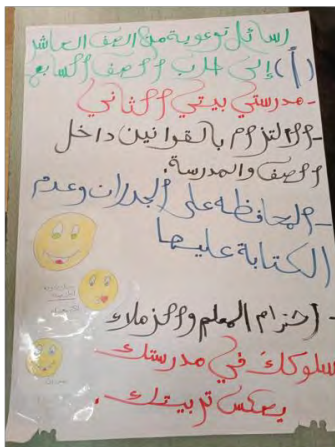 رسائل توعوية من الصف العاشر
(أ) إلى طلاب الصف السابع
- مدرستي بيتي الثاني
- الالتزام بالقوانين داخل
الصف والمدرسة.
- المحافظة على الجدران وعدم
الكتابة عليها
- احترام المعلم والزملاء
سلوكك في مدرستك
يعكس تربيتك.